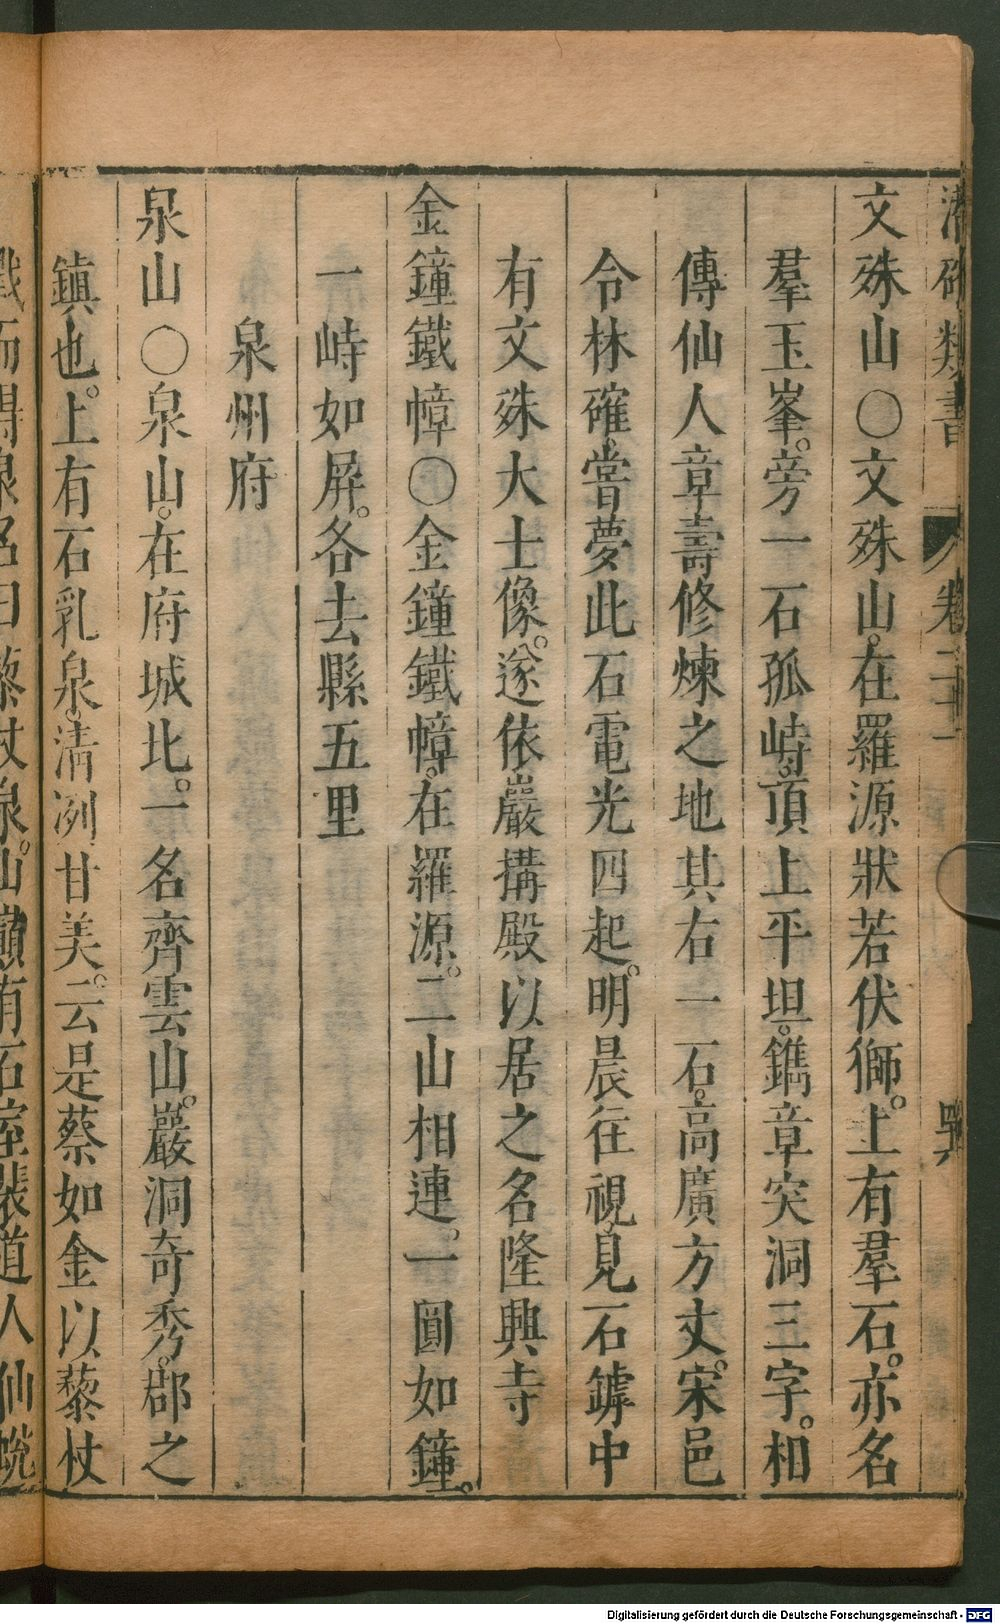 潛確類書 卷二十一
文殊山○文殊山。在羅源狀若伏獅。上有羣石。亦名
羣玉峯。旁一石孤峙。頂上平坦。鐫章突洞三字。相
傳仙人章壽修煉之地其右一石。高廣方丈。宋邑
令林確。嘗夢此石電光四起。明晨往視。見石罅中
有文殊大士像。遂依巖搆殿以居之名隆興寺
金鐘鐵幛○金鐘鐵幛。在羅源。二山相連。一圓如鐘。
一峙如屏。各去縣五里
泉州府
泉山○泉山。在府城北。一名齊雲山。巖洞奇秀。郡之
鎮也。上有石乳泉。清冽甘美。云是蔡如金以藜杖
戳而得泉名曰藜杖泉。山巔有石室裴道人仙蛻
Digitalisierung gefördert durch die Deutsche Forschungsgemeinschaft - DFG